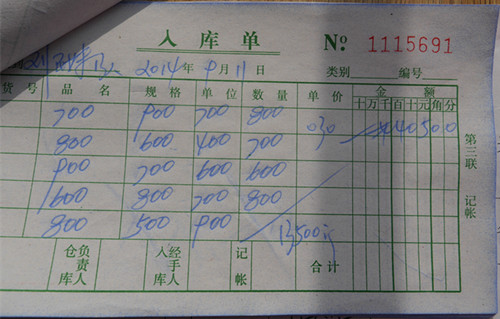 入库单 № 1115691
2014年9月11日 类别 编号
货号 品名 规格 单位 数量 单价 金额
十万千百十元角分
700 900 700 800 030 40500
800 600 400 700
900 700 600 600
600 800 700 800
800 500 900 13500
仓库负责人 入库经手人 记帐 合计
第三联 记帐